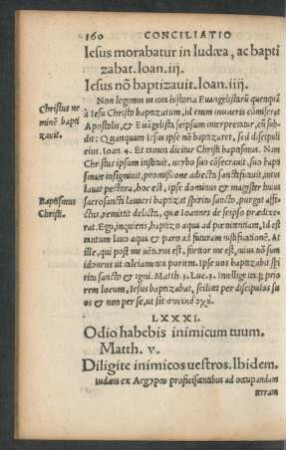 160 CONCILIATIO
Iesus morabatur in Iudæa, ac bapti
zabat. Ioan. iij.
Iesus nõ baptizauit. Ioan. iiij.
Non legimus in tota historia Euangelistarũ quenquã
à Iesu Christo baptizatum, id enim muneris cõmiserat
Christus ne
minẽ bapti
zauit.
Apostolis, & Euãgelista seipsum interpretatur, cũ sub
dit: Quanquam Iesus ipse nõ baptizaret, sed discipuli
eius. Ioan 4. Et tamen dicitur Christi baptismus. Nam
Christus ipsum instituit, verbo suo cõsecrauit, suo bapti
smate insigniuit, promissione adiecta sanctificauit, intus
Baptismus
Christi.
lauat pectora, hoc est, ipse dominus & magister huius
sacrosancti lauacri baptizat spiritu sancto, purgat affli
ctos, remittit delicta, quæ Ioannes de seipso prædixe-
rat. Ego, inquiens, baptizo aqua ad pœnitentiam, id est
tantum luto aqua & paro ad futuram iustificationẽ. At
ille, qui post me uẽturus est, fortior me est, cuius nõ sum
idoneus ut calciamenta portem. Ipse uos baptizabit spi
ritu sancto & igni. Matth. 3. Luc. 3. Intellige itaq; prio
rem locum, Iesus baptizabat, scilicet per discipulos su
os & non per se, ut sit
LXXXI.
Odio habebis inimicum tuum.
Matth. v.
Diligite inimicos uestros. Ibidem.
Iudæis ex Aegypto proficiscentibus ad occupandam
terram